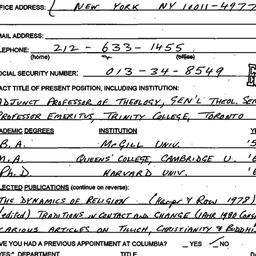 FFICE ADDRESS: NEW YORK NY 10011-4977
MAIL ADDRESS:
ELEPHONE: 212-633-1455
(home) (office)
OCIAL SECURITY NUMBER: 013-34-8549
ACT TITLE OF PRESENT POSITION, INCLUDING INSTITUTION:
ADJUNCT PROFESSOR OF THEOLOGY, GEN'L THEOL. SEM
PROFESSOR EMERITUS, TRINITY COLLEGE, TORONTO
CADEMIC DEGREES INSTITUTION
B.A. MCGILL UNIV.
M.A. QUEENS' COLLEGE, CAMBRIDGE U.
Ph.D. HARVARD UNIV.
ELECTED PUBLICATIONS (continue on reverse):
THE DYNAMICS OF RELIGION (Harper & Row 1978)
(edited) TRADITIONS IN CONTACT AND CHANGE (IAHR 1980
VARIOUS ARTICLES ON TILLICH, CHRISTIANITY & BUDDHI
AVE YOU HAD A PREVIOUS APPOINTMENT AT COLUMBIA? YES NO
YES:* DEPARTMENT TITLE DAT